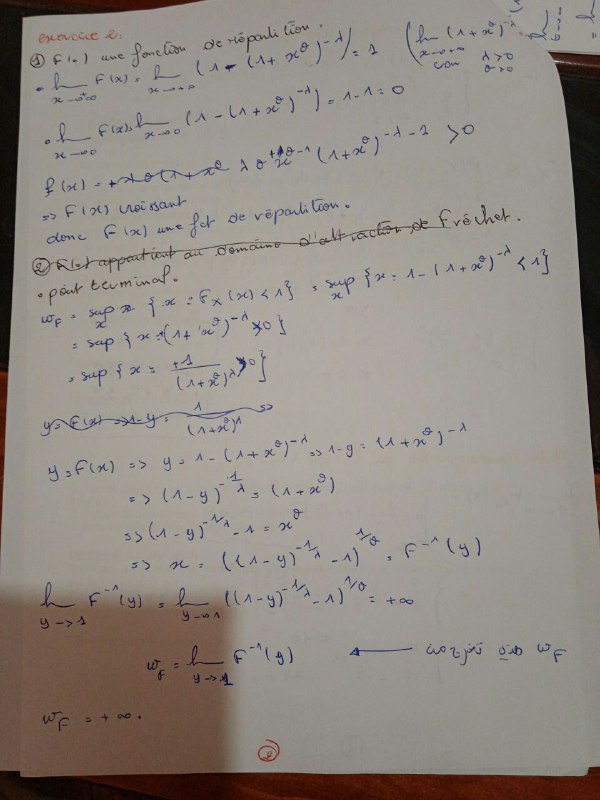 exercice 2:
1) F(.) une fonction de répartition.
• lim x→+∞ F(x) = lim x→+∞ (1 - (1 + x^θ)^-λ) = 1 ( lim x→+∞ (1 + x^θ)^-λ con λ>0 θ>0
• lim x→0 F(x) = lim x→0 (1 - (1 + x^θ)^-λ) = 1 - 1 = 0
f(x) = + λ θ (1 + x^θ λ θ x^θ-1 (1 + x^θ)^-λ-1 > 0
=> F(x) croissant
donc F(x) une fct de répartition.
2) F(.) appartient au domaine d'attraction de Fréchet.
• point terminal.
w_F = sup x {x : F_X(x) < 1} = sup x {x : 1 - (1 + x^θ)^-λ < 1}
= sup {x : (1 + x^θ)^-λ > 0}
= sup {x : +1/(1 + x^θ)^λ > 0}
y = F(x) => 1 - y = 1/(1 + x^θ)^λ =>
y = F(x) => y = 1 - (1 + x^θ)^-λ => 1 - y = (1 + x^θ)^-λ
=> (1 - y)^-1/λ = (1 + x^θ)
=> (1 - y)^-1/λ - 1 = x^θ
=> x = ((1 - y)^-1/λ - 1)^1/θ = F^-1(y)
lim y→1 F^-1(y) = lim y→1 ((1 - y)^-1/λ - 1)^1/θ = +∞
w_F = lim y→1 F^-1(y) ← w_F
w_F = +∞.
2